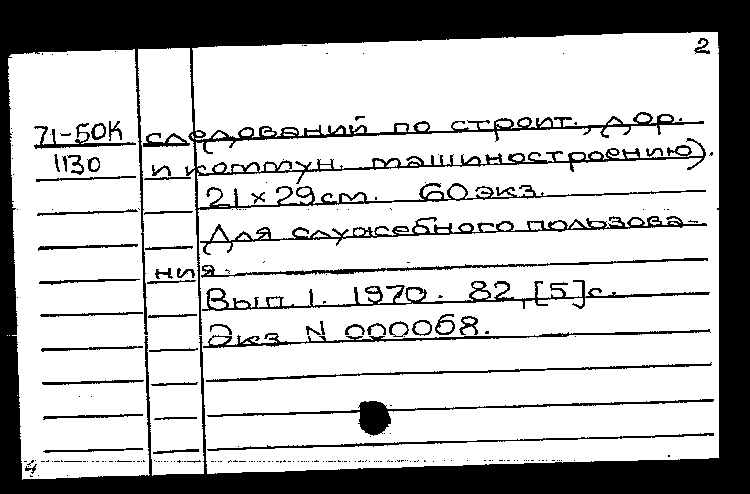 2
71-БОК следований по строит., дор.
1130 и коммун. машиностроению).
21×29cm. 60 экз.
Для служебного пользова-
ния.
Вып. 1. 1970. 82, [5] с.
Экз. N 000068.
4